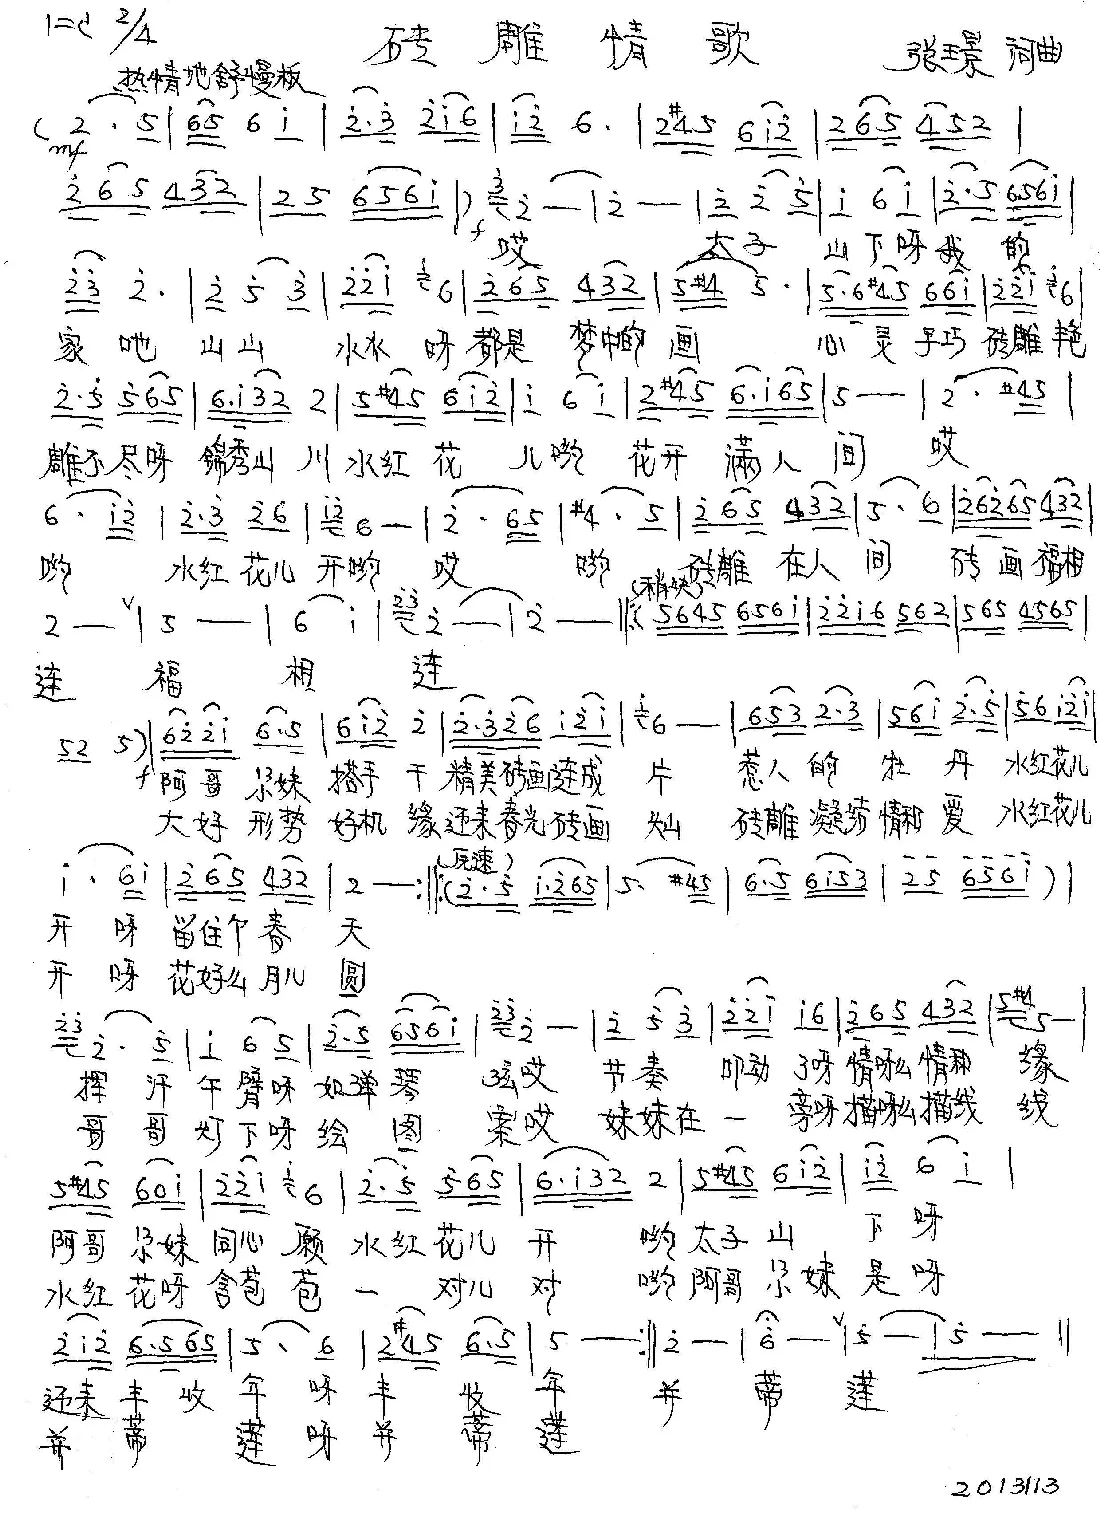 1=C 2/4
砖雕情歌
张玉景 词曲
热情地 舒慢板
(2·5|65 6i|2·3 2i6|i2 6·|2#45 6i2|265 452|
mf
265 432|25 656i|)32—|2—|2 25|i 6i|2·5 656i|
f 哎 太子 山下呀我的
23 2·|2 53|22i 6|265 432|5#4 5·|5·6#45 66i|22i 6|
家吔 山山 水水 呀都是 梦中的 画 心灵 手巧 砖雕艳
2·5 565|6·i32 2|5#45 6i2|i 6i|2#45 6·i65|5—|2·#45|
雕不尽呀 锦秀山川 水红花 儿哟 花开满人间 哎
6·i2|2·3 26|i2 6—|2·65|#4·5|265 432|5·6|26265 432|
哟 水红花儿 开哟 哎 哟 砖雕在人间 砖画福相
(稍快)
2—|5—|6i|23 2—|2—‖:(5645 656i|22i6 562|565 4565|
连 福 相 连
52 5)|622i 6·5|6i2 2|2·326 i2i|i6—|653 2·3|56i 2·5|56 i2i|
f 阿哥尕妹 搭手干 精美砖画连成片 惹人的 牡丹 水红花儿
大好形势 好机缘 还来春光砖画灿 砖雕凝结情和爱 水红花儿
(原速)
i·6i|265 432|2—:‖:(2·5 i·265|5·#45|6·5 6i53|25 656i)|
开呀 留住个春天
开呀 花好么月儿圆
23 2·5|i 65|2·5 656i|23 2—|2 53|22i i6|265 432|5#4 5—|
挥汗 午臂呀 如弹琴 弦哎 节奏 叩动了呀 情呀么情和 缘
哥哥 灯下呀 绘图 案哎 妹妹在一 旁呀 描呀么描线 线
5#45 60i|22i 6|2·5 565|6·i32 2|5#45 6i2|i2 6i|
阿哥尕妹 同心愿 水红花儿 开 哟 太子山 下呀
水红花呀 含苞苞 一对儿对 哟 阿哥尕妹是呀
2i2 6·565|5·6|2#45 6·5|5—:‖2—|6—|5—|5—‖
还来丰收年呀丰收年 并蒂莲
并蒂莲呀并蒂莲
2013113